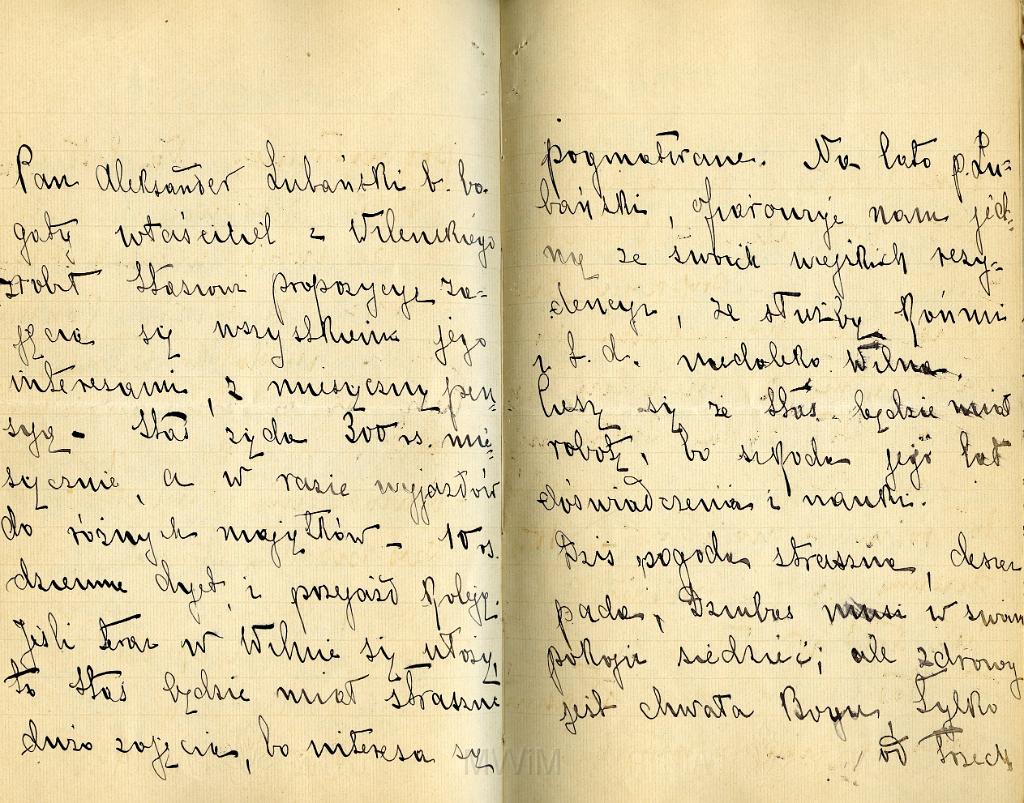 Pan Aleksander Łubański b. bo-
gaty właściciel z Wileńskiego
zrobił Stasiowi propozycyę za-
jęcia się wszystkiemi jego
interesami, z miesięczną pen-
syą – Staś żąda 300 rs. mie-
sięcznie, a w razie wyjazdów
do różnych majątków – 10 rs.
dziennie dyet, i przejazd koleją.
Jeśli teraz w Wilnie się ułoży,
to Staś będzie miał straszne
dużo zajęcia, bo interesa są
pogmatwane. Na lato p. Łu-
bański, ofiarowuje nam jed-
ną ze swoich wiejskich rezy-
dencyi, ze służbą końmi
i t. d. niedaleko Wilna.
Cieszę się że Staś będzie miał
robotę, bo szkoda jego lat
doświadczenia i nauki.
Dziś pogoda straszna, deszcz
pada, Dziubas musi w swoim
pokoju siedzieć; ale zdrowy
jest chwała Bogu, Tylko
od trzech
MWiM